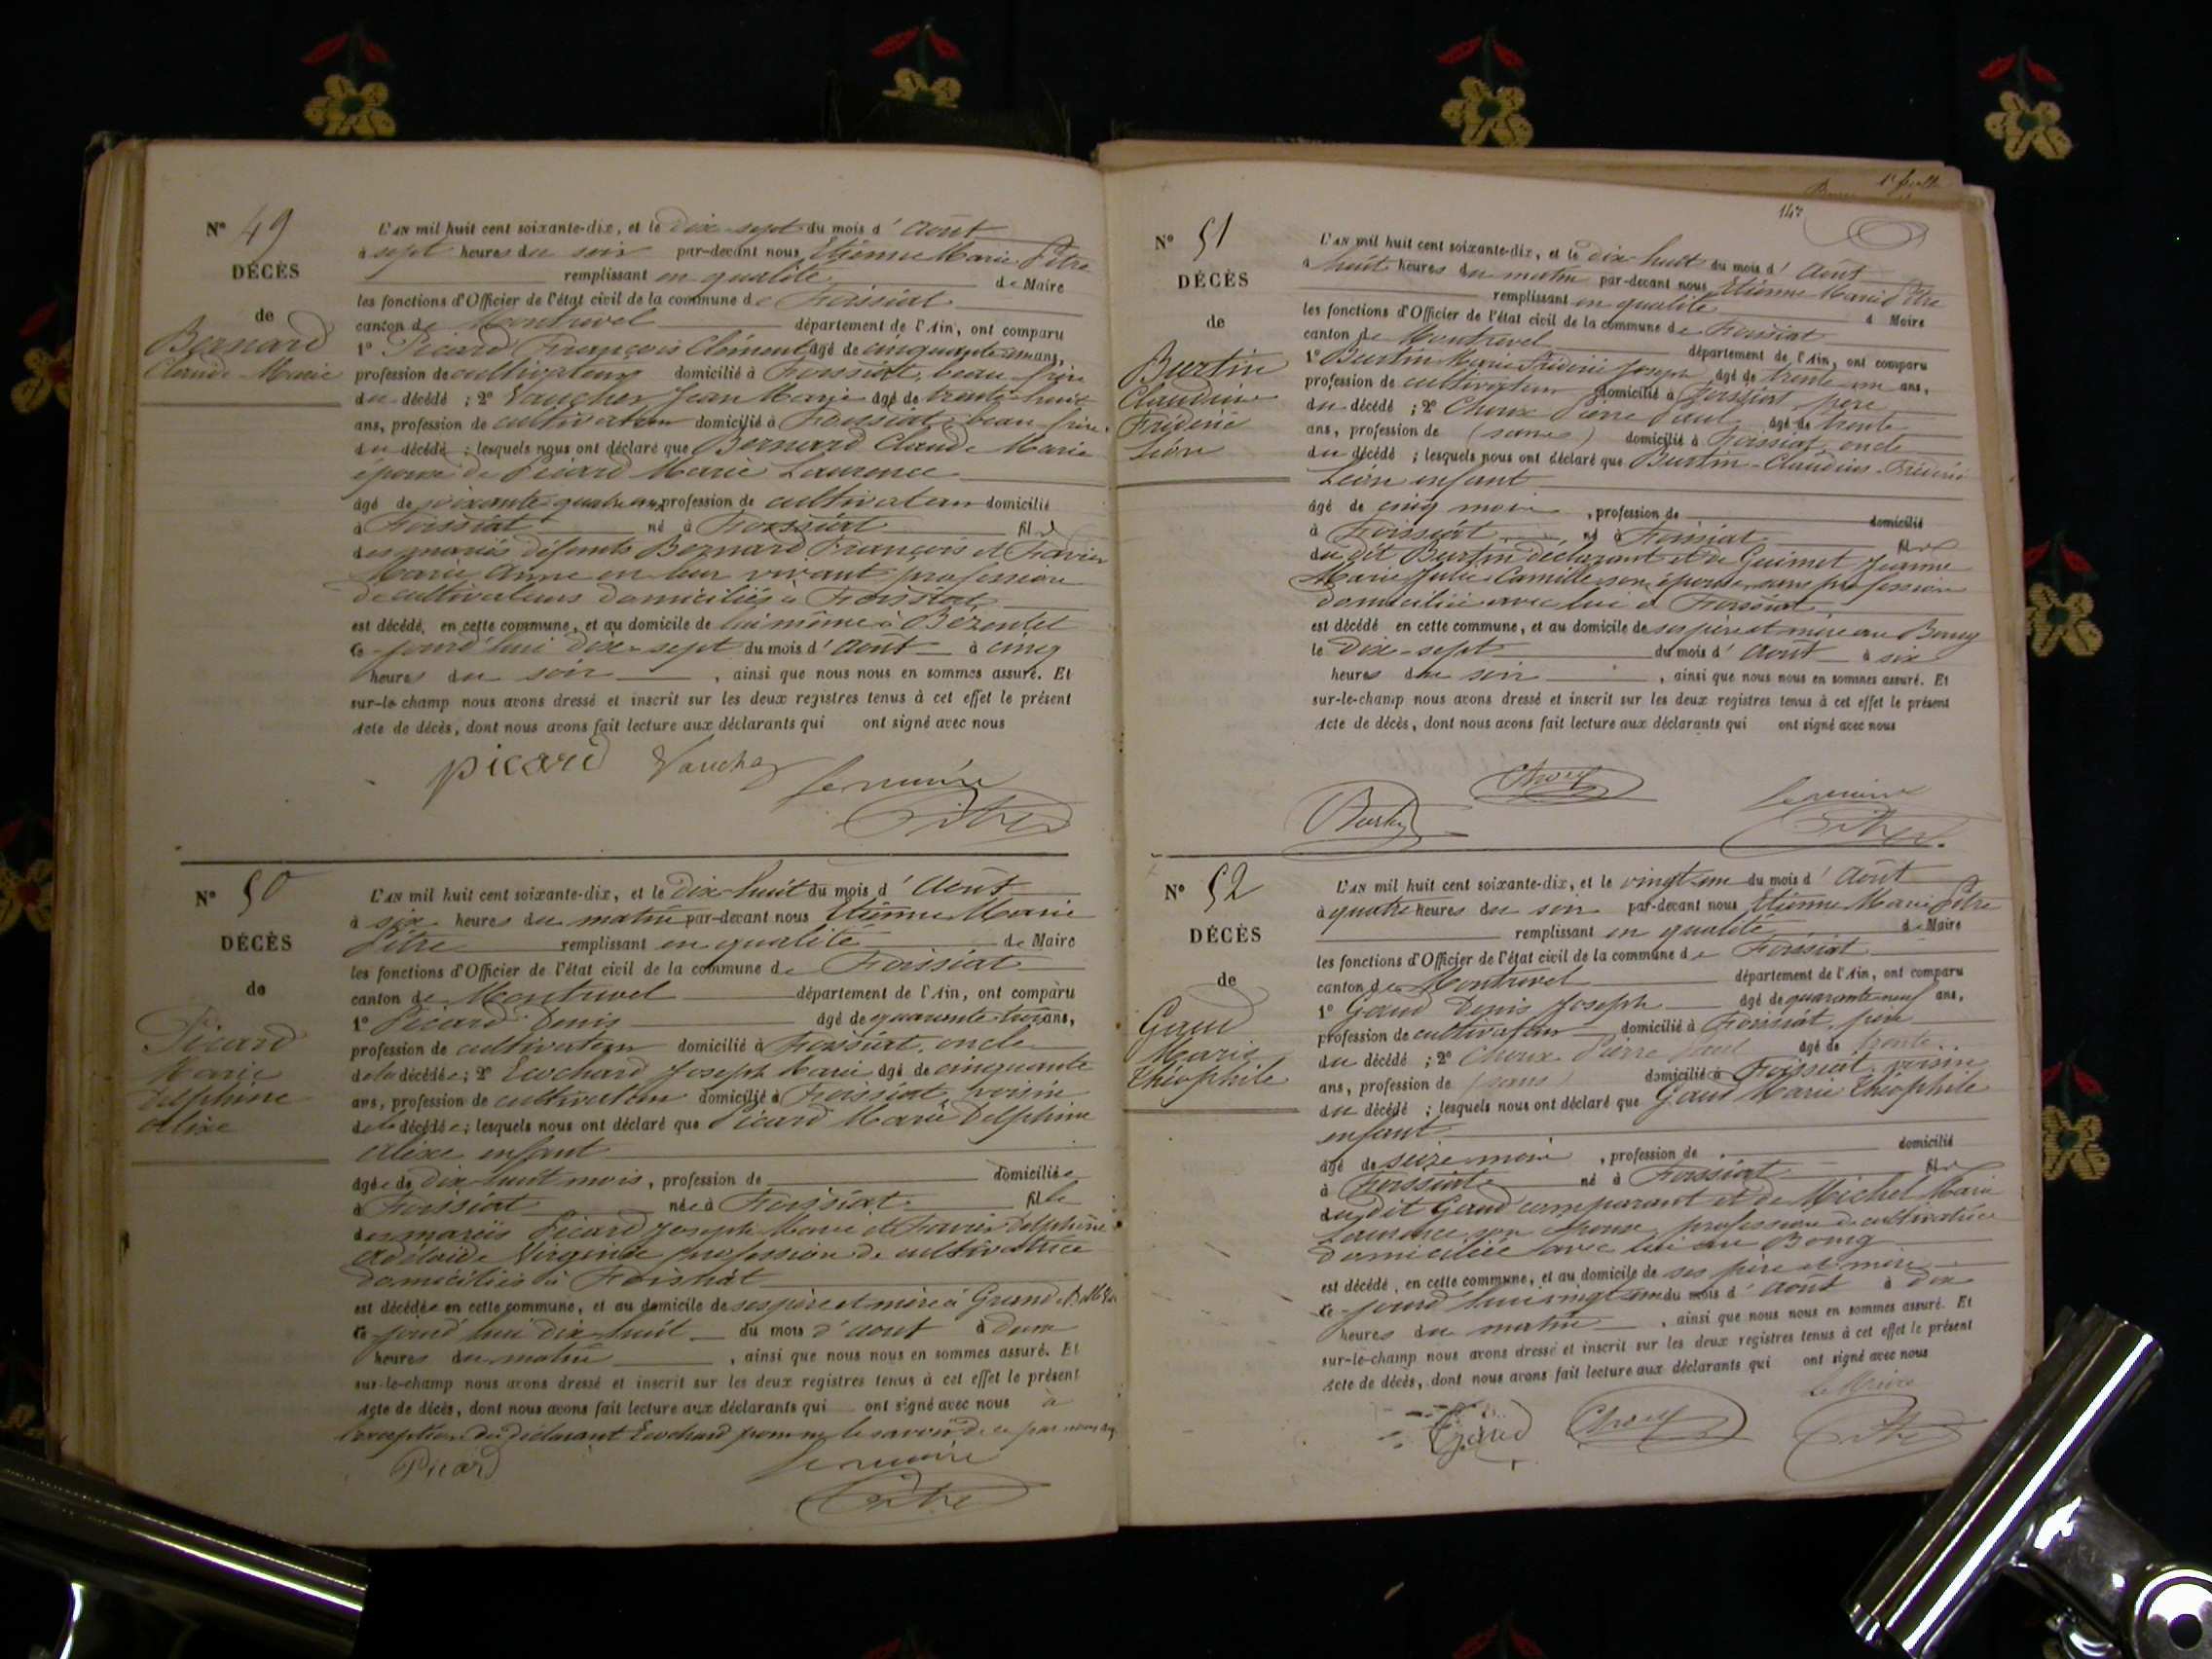 N° 49
DÉCÈS
de
Bernard
Claude Marie
L'AN mil huit cent soixante-dix, et le dix-sept du mois d'Août
à sept heures du soir par-devant nous Etienne Marie Pitre
remplissant en qualité de Maire
les fonctions d'Officier de l'état civil de la commune de Foissiat
canton de Montrevel département de l'Ain, ont comparu
1° Picard François Clément âgé de cinquante ans,
profession de cultivateur domicilié à Foissiat, beau-frère
du décédé ; 2° Vaucher Jean Marie âgé de trente-huit
ans, profession de cultivateur domicilié à Foissiat, beau frère
du décédé ; lesquels nous ont déclaré que Bernard Claude Marie
époux de Picard Marie Laurence
âgé de soixante quatre ans profession de cultivateur domicilié
à Foissiat né à Foissiat fils
des mariés défunts Bernard François et Favier
Marie Anne en leur vivant profession
de cultivateurs domiciliés à Foissiat
est décédé, en cette commune, et au domicile de lui même à Bézentet
ce jourd'hui dix-sept du mois d'Août à cinq
heures du soir , ainsi que nous nous en sommes assuré. Et
sur-le-champ nous avons dressé et inscrit sur les deux registres tenus à cet effet le présent
Acte de décès, dont nous avons fait lecture aux déclarants qui ont signé avec nous
Picard Vaucher Le maire
Pitre
N° 50
DÉCÈS
de
Picard
Marie
Delphine
Alixe
L'AN mil huit cent soixante-dix, et le dix-huit du mois d'Août
à six heures du matin par-devant nous Etienne Marie
Pitre remplissant en qualité de Maire
les fonctions d'Officier de l'état civil de la commune de Foissiat
canton de Montrevel département de l'Ain, ont comparu
1° Picard Denis âgé de quarante trois ans,
profession de cultivateur domicilié à Foissiat, oncle
de la décédée ; 2° Ecochard Joseph Marie âgé de cinquante
ans, profession de cultivateur domicilié à Foissiat, voisin
de la décédée ; lesquels nous ont déclaré que Picard Marie Delphine
Alixe enfant
âgée de dix huit mois, profession de domiciliée
à Foissiat née à Foissiat fille
des mariés Picard Joseph Marie et Favier Delphine
Adelaide Virginie profession de cultivatrice
domiciliés à Foissiat
est décédée en cette commune, et au domicile de ses père et mère à Grand
ce jourd'hui dix-huit du mois d'août à deux
heures du matin , ainsi que nous nous en sommes assuré. Et
sur-le-champ nous avons dressé et inscrit sur les deux registres tenus à cet effet le présent
Acte de décès, dont nous avons fait lecture aux déclarants qui ont signé avec nous à
l'exception du déclarant Ecochard pour ne le savoir de ce par nous
Picard Le maire
Pitre
147
N° 51
DÉCÈS
de
Burtin
Claudius
Fréderic
Léon
L'AN mil huit cent soixante-dix, et le dix-huit du mois d'Août
à huit heures du matin par-devant nous Etienne Marie Pitre
remplissant en qualité d Maire
les fonctions d'Officier de l'état civil de la commune de Foissiat
canton de Montrevel département de l'Ain, ont comparu
1° Burtin Marie Fréderic Joseph âgé de trente un ans,
profession de cultivateur domicilié à Foissiat, père
du décédé ; 2° Choux Pierre Paul âgé de trente
ans, profession de (sans) domicilié à Foissiat, oncle
du décédé ; lesquels nous ont déclaré que Burtin Claudius Fréderic
Léon enfant
âgé de cinq mois , profession de domicilié
à Foissiat né à Foissiat fils
du dit Burtin déclarant et de Guimet Jeanne
Marie Julie Camille son épouse, sans profession
domiciliée avec lui à Foissiat
est décédé en cette commune, et au domicile de ses père et mère au Bourg
le dix-sept du mois d'Août à six
heures du soir , ainsi que nous nous en sommes assuré. Et
sur-le-champ nous avons dressé et inscrit sur les deux registres tenus à cet effet le présent
Acte de décès, dont nous avons fait lecture aux déclarants qui ont signé avec nous
Choux
Burtin Le maire
Pitre
N° 52
DÉCÈS
de
Gaud
Marie
Théophile
L'AN mil huit cent soixante-dix, et le vingt-un du mois d'Août
à quatre heures du soir par-devant nous Etienne Marie Pitre
remplissant en qualité de Maire
les fonctions d'Officier de l'état civil de la commune de Foissiat
canton de Montrevel département de l'Ain, ont comparu
1° Gaud Denis Joseph âgé de quarante neuf ans,
profession de cultivateur domicilié à Foissiat, père
du décédé ; 2° Choux Pierre Paul âgé de trente
ans, profession de (sans) domicilié à Foissiat, voisin
du décédé ; lesquels nous ont déclaré que Gaud Marie Théophile
enfant
âgé de seize mois , profession de domicilié
à Foissiat né à Foissiat fils
du dit Gaud comparant et de Michel Marie
Laurence son épouse, profession de cultivatrice
domiciliée avec lui au Bourg
est décédé, en cette commune, et au domicile de ses père et mère
ce jourd'hui vingt un du mois d'Août à dix
heures du matin , ainsi que nous nous en sommes assuré. Et
sur-le-champ nous avons dressé et inscrit sur les deux registres tenus à cet effet le présent
Acte de décès, dont nous avons fait lecture aux déclarants qui ont signé avec nous
Le Maire
Gaud Choux Pitre